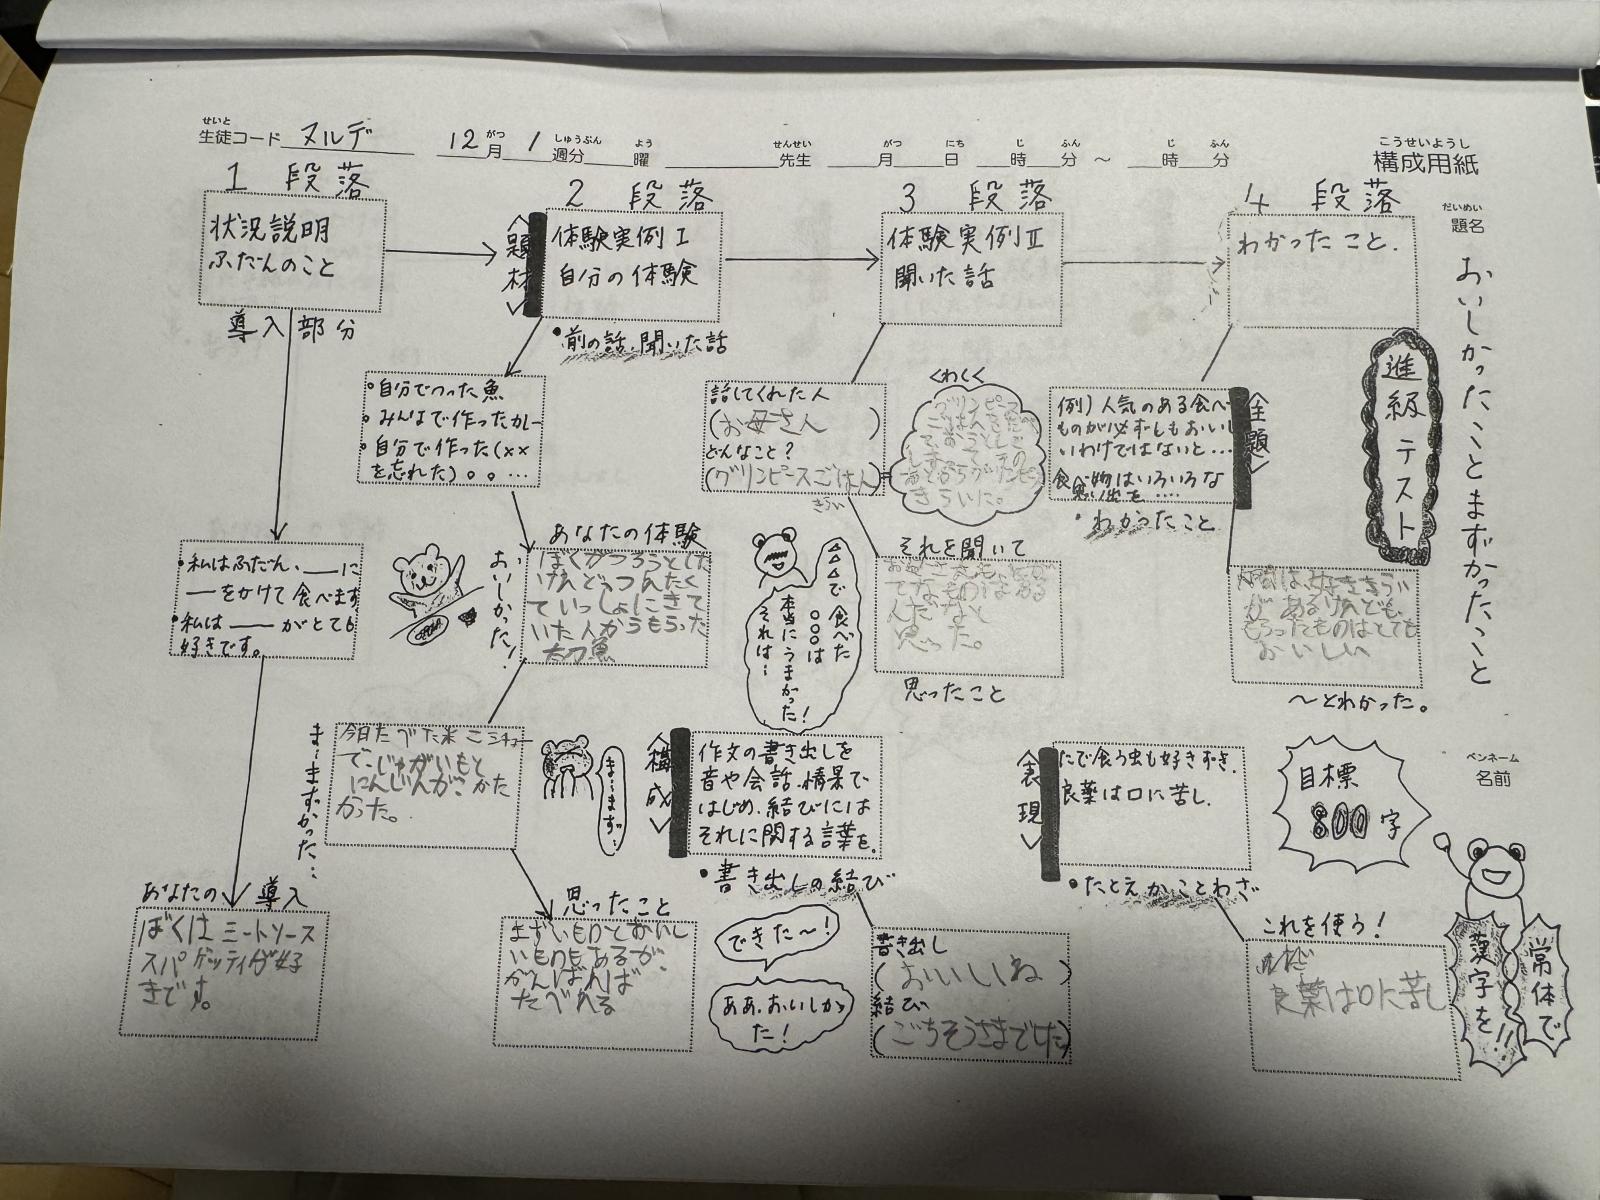 せいと
生徒コード ヌルデ 12月 1週分 曜 先生 月 日 時 分 ～ 時 分
がつ しゅうぶん よう せんせい がつ にち じ ふん じ ふん
こうせいようし
構成用紙
だいめい
題名
おいしかったことまずかったこと
進級テスト
1 段落
状況説明
ふだんのこと
導入部分
・私はふだん、――に
―をかけて食べます
・私は――がとても
好きです。
あなたの導入
ぼくはミートソース
スパゲッティが好
きです。
2 段落
<題材>
体験実例Ⅰ
自分の体験
・前の話、聞いた話
・自分でつった魚
・みんなで作ったカレー
・自分で作った(××
を忘れた)。。…
あなたの体験
ぼくがつろうとした
けれどつれなくて
いっしょにきて
いた人からもらった
太刀魚
おいしかった!
今日たべた米こシチュー
で、じゃがいもと
にんじんがかた
かった。
ま…まずかった…
ま…まず…
思ったこと
まずいものとおいし
いものもあるが、
がんばれば
たべれる
3 段落
体験実例Ⅱ
聞いた話
話してくれた人
(お母さん)
どんなこと?
(グリンピースごはん)
きらい
くわしく
きらいに。
それを聞いて
思った。
思ったこと
△△で食べた
○○○は
本当にうまかった!
それは…
<構成>
作文の書き出しを
音や会話、情景で
はじめ、結びには
それに関する言葉を。
・書き出しの結び
できた～!
ああ、おいしかっ
た!
書き出し
(おいしいね)
結び
(ごちそうさまでした)
4 段落
わかったこと.
例)人気のある食べ
ものが必ずしもおいし
いわけではないと…
食べ物はいろいろな
思い出を….
<主題>
・わかったこと
人間は好ききらい
があるけれども、
もらったものはとても
おいしい
～とわかった。
<表現>
たで食う虫も好きずき.
良薬は口に苦し.
・たとえかことわざ
これを使う!
良薬は口に苦し
目標
800字
ペンネーム
名前
常体で
漢字を!!